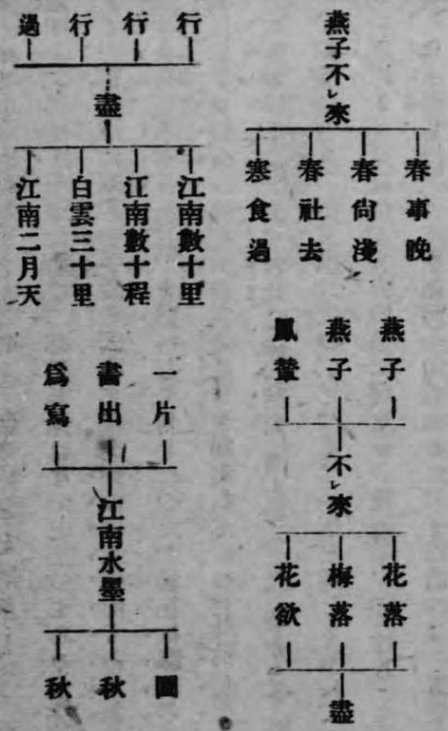 燕子不レ來
春事晚
春尙淺
春社去
寒食過
燕子
燕子
鳳輦
不レ來
花落
梅落
花欲
盡
行
行
行
過
盡
江南數十里
江南數十程
白雲三十里
江南二月天
一片
書出
爲寫
江南水墨
圖
秋
秋